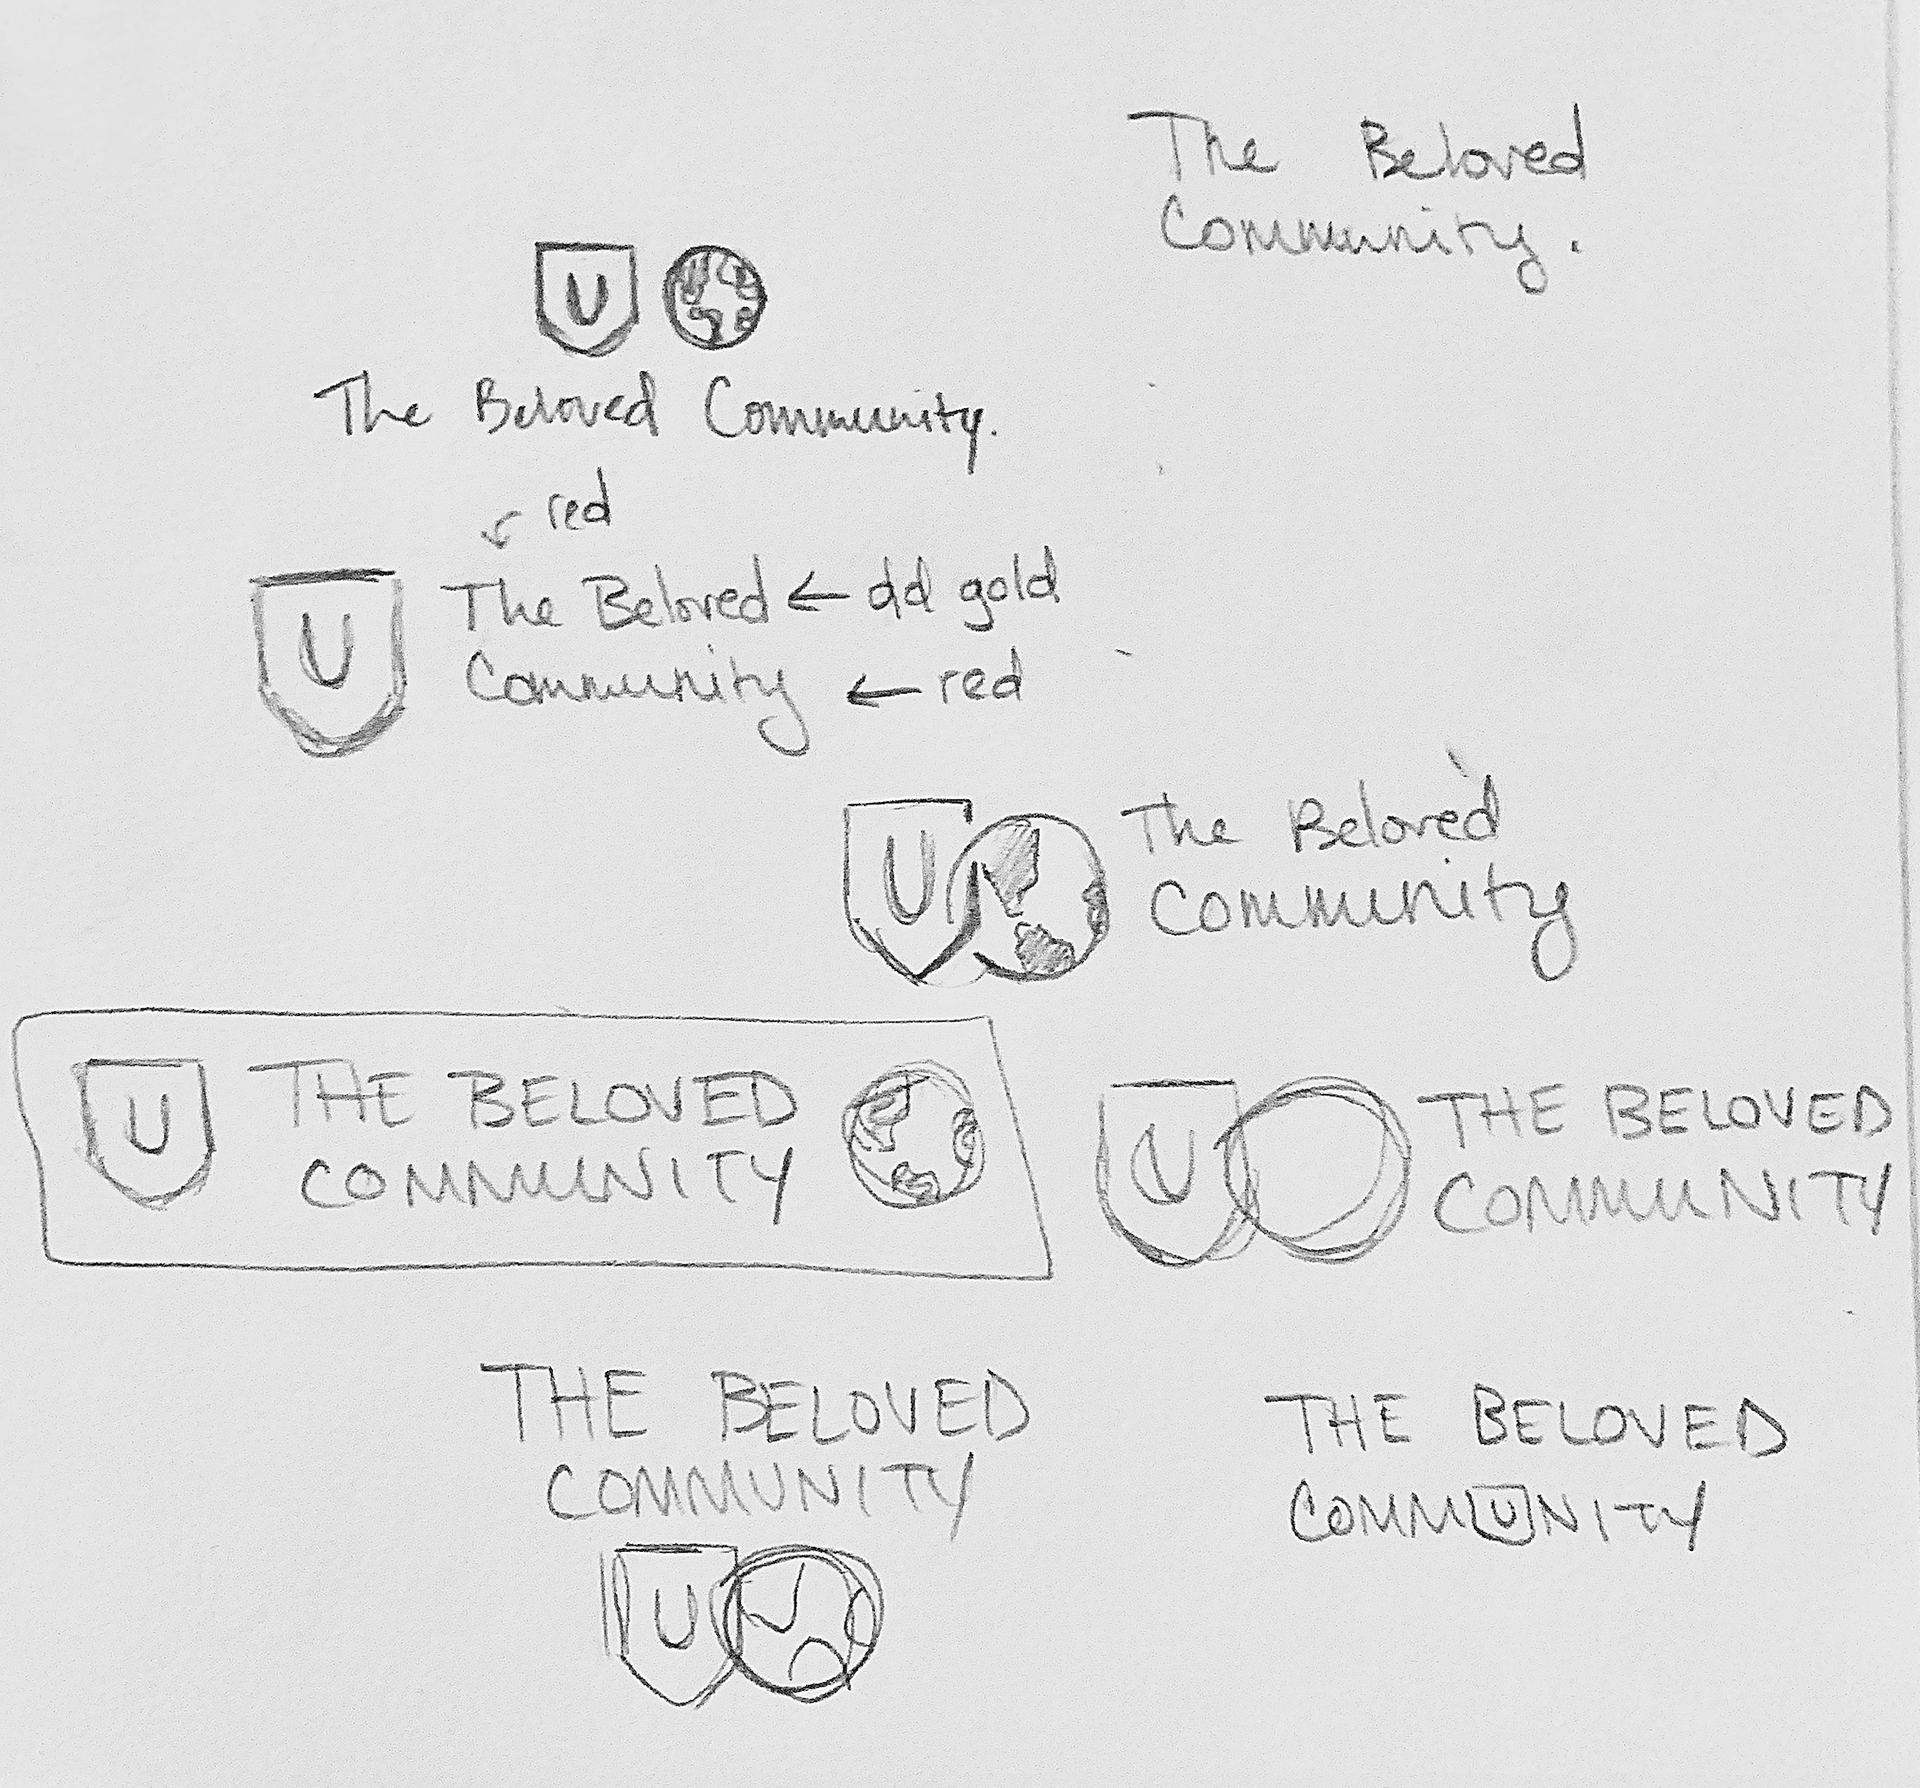 The Beloved
Community.
U
The Beloved Community.
red
U
The Beloved ← dd gold
Community ← red
U
The Beloved
Community
U
THE BELOVED
COMMUNITY
U
THE BELOVED
COMMUNITY
THE BELOVED
COMMUNITY
U
THE BELOVED
COMMUNITY